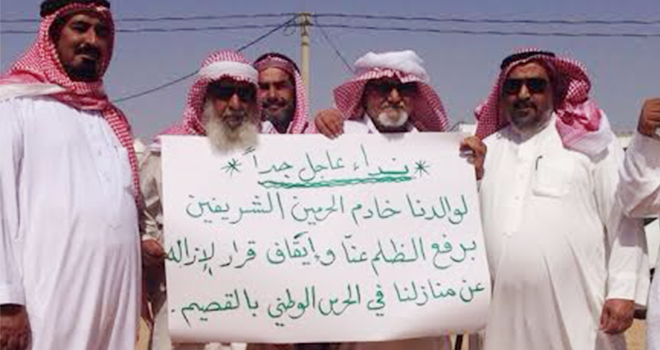 * نداء عاجل جداً *
لوالدنا خادم الحرمين الشريفين
برفع الظلم عنّا وإيقاف قرار لإزاله
عن منازلنا في الحرس الوطني بالقصيم.